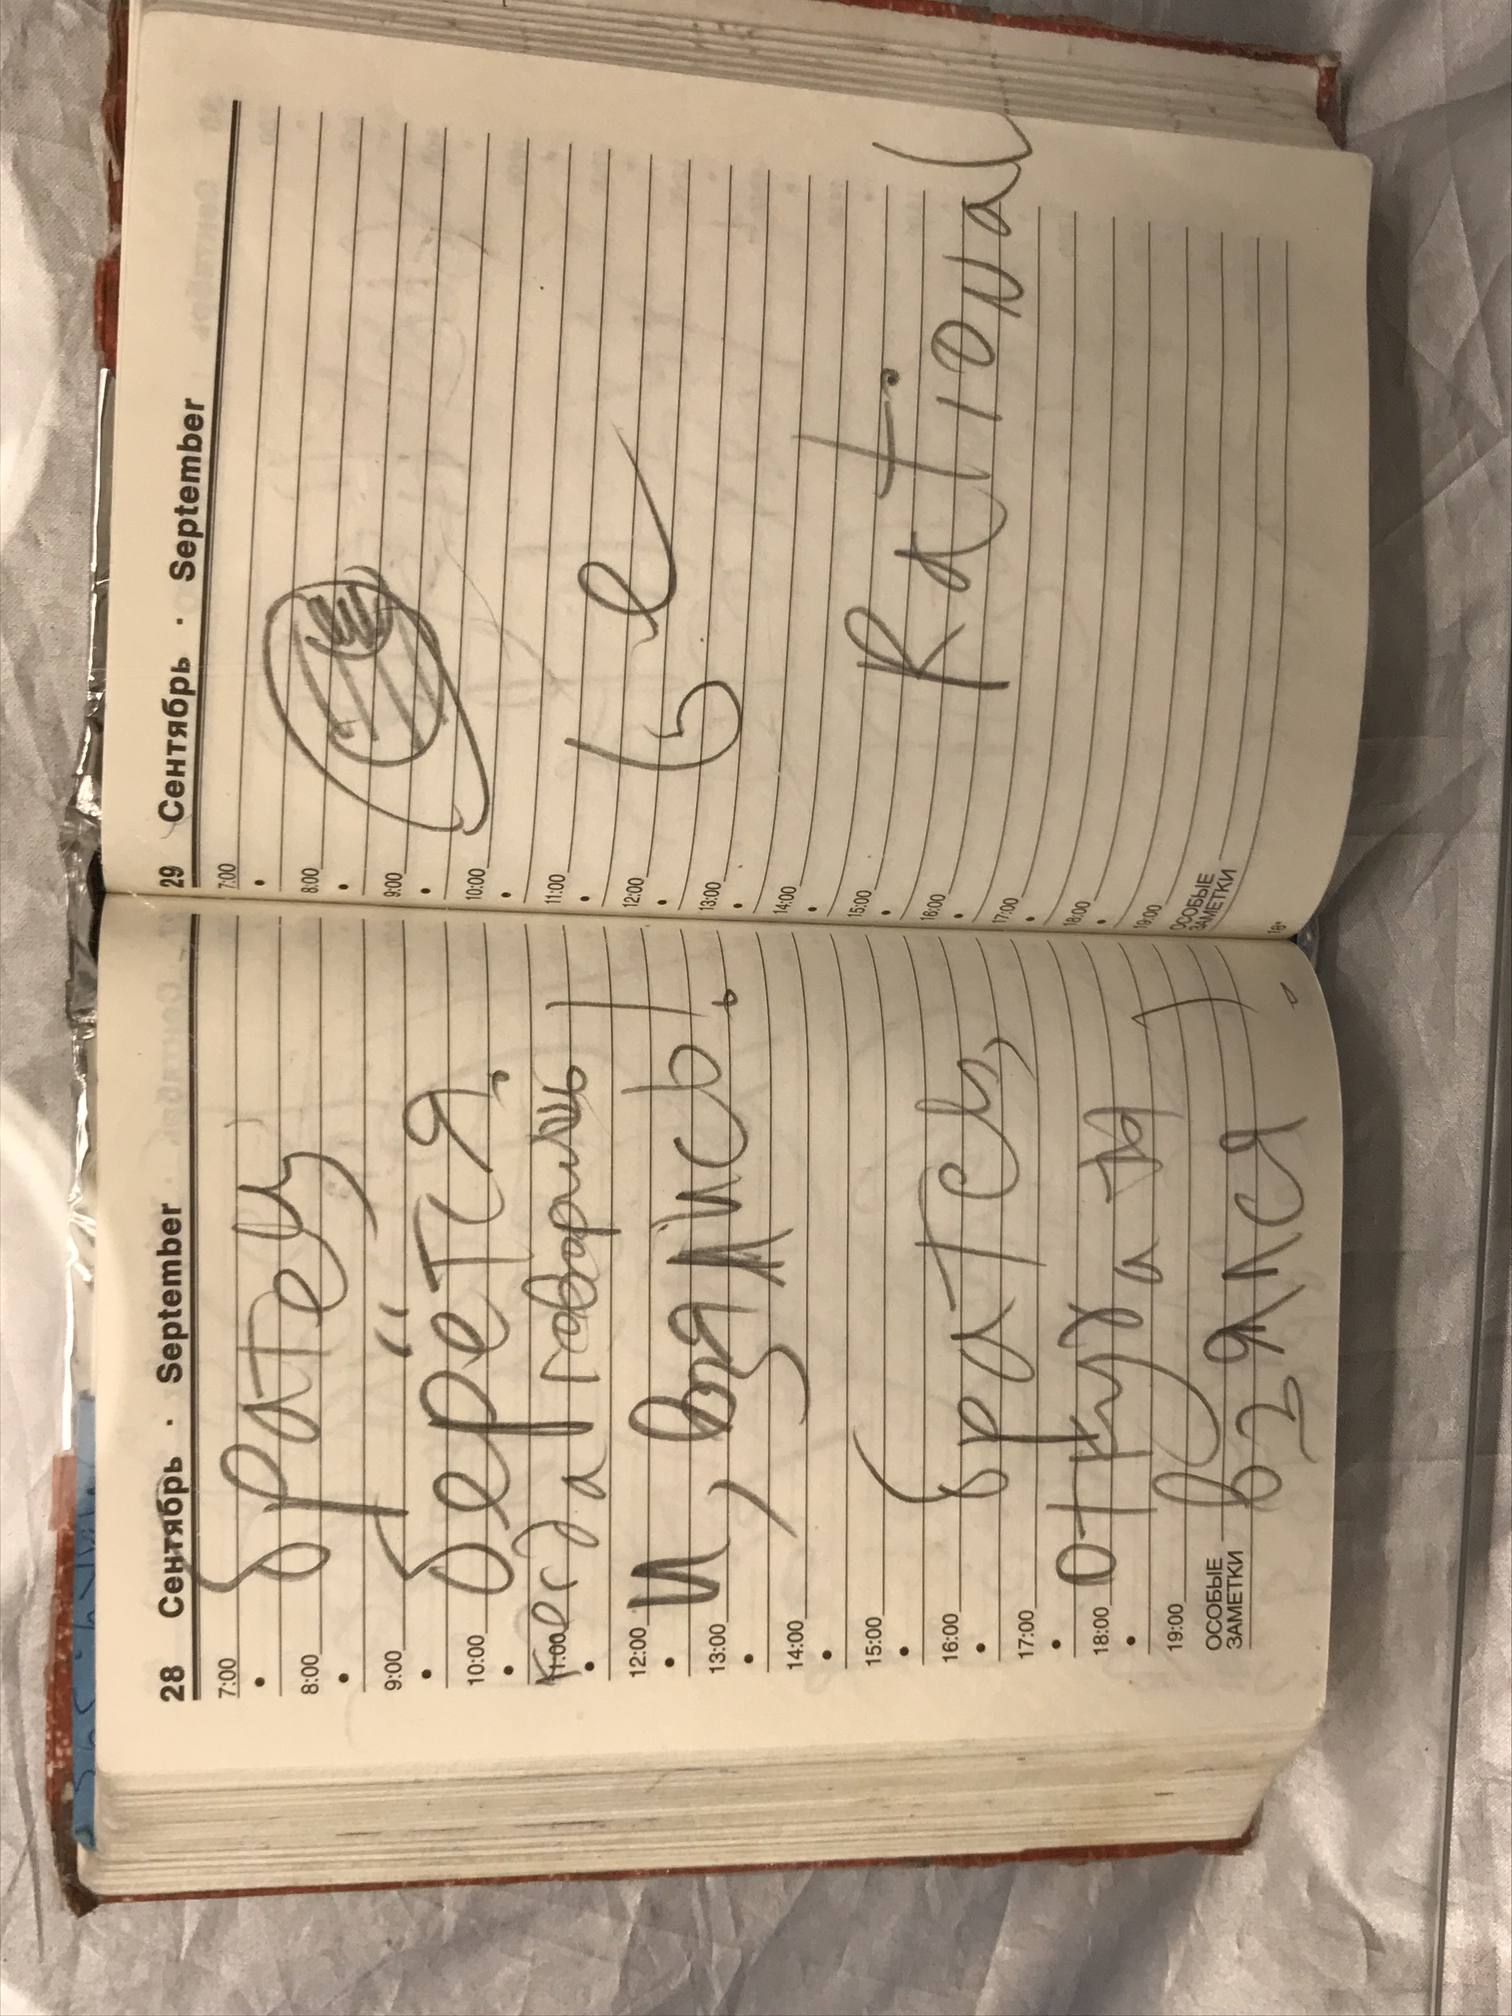 28 Сентябрь · September
7:00
8:00
9:00
10:00
11:00
12:00
13:00
14:00
15:00
16:00
17:00
18:00
19:00
ОСОБЫЕ
ЗАМЕТКИ
братец
берётся.
когда говоришь
и, взялись!
братец,
откуда ты
взялся
29 Сентябрь · September
7:00
8:00
9:00
10:00
11:00
12:00
13:00
14:00
15:00
16:00
17:00
18:00
19:00
ОСОБЫЕ
ЗАМЕТКИ
Be
Rational